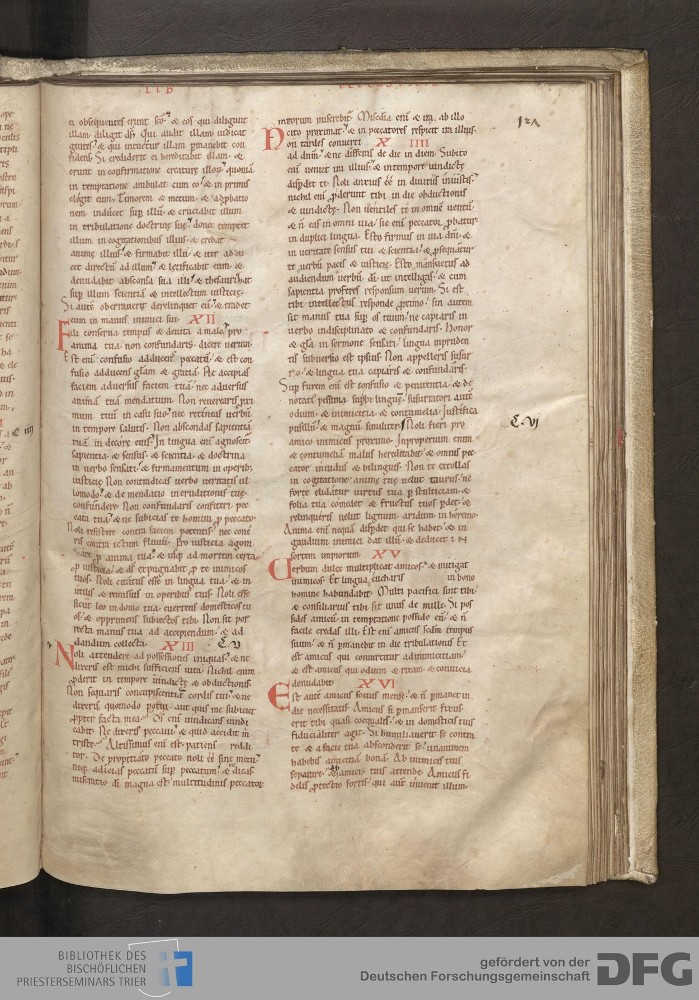 LIB
et obsequentes erunt sco. & eos qui diligunt
illam diligit ds. Qui audit illam iudicat
gentes. & qui intuetur illam pmanebit con
fidens. Si crediderit ei hereditabit illam. &
erunt in confirmatione creature illoꝝ. quoniā
in temptatione ambulat cum eo. & in primis
elegit eum. Timorem & metum. & adphatio
nem inducet sup illū. & cruciabit illum
in tribulatione doctrinę suę. donec temptet
illum in cogitationibus illius. & credat
animę illius. & firmabit illū. & iter addu
cet directū ad illum. & letificabit eum. &
denudabit absconsa sua illi. & thesaurizat
sup illum scientiā & intellectum iusticię.
Si autē oberrauerit derelinquet eū. & tradet
eum in manus inimici sui. XII
Fili conserua tempus & deuita a malo. pro
anima tua non confundaris dicere uerum.
Est enī confusio adducens peccatū. & est con
fusio adducens glam & gratiā. Ne accipias
faciem aduersus faciem tuā. nec aduersus
animā tuā mendatium. Non reuerearis pxi
mum tuū in casu suo. nec retineas uerbū
in tempore salutis. Non abscondas sapientiā
tuā in decore eius. In lingua enī agnoscit
sapientia. & sensus. & scientia. & doctrina
in uerbo sensati. & firmamentum in operib;
iusticię. Non contradicas uerbo ueritatis ul
lomodo. & de mendatio ineruditionis tuę
confundere. Non confundaris confiteri pec
cata tua. & ne subicias te homini p peccato.
Noli resistere contra faciem potentis. nec cone
ris contra ictum fluuii. Pro iusticia agoni
zare p anima tua. & usq; ad mortem certa
p iusticia. & ds expugnabit p te inimicos
tuos. Noli citatus esse in lingua tua. & in
utilis & remissus in operibus tuis. Noli esse
sicut leo in domo tua. euertens domesticos tu
os. & opprimens subiectos tibi. Non sit por
recta manus tua ad accipiendum. & ad
dandum collecta. XIII C. V
Noli attendere ad possessiones iniquas. & ne
dixeris est michi sufficiens uita. Nichil enim
pderit in tempore uindictę & obductionis.
Non sequaris concupiscentiā cordis tui. & ne
dixeris quomodo potui. aut quis me subiciet
ppter facta mea. Ds enī uindicans uindi
cabit. Ne dixeris peccaui. & quid accidit m
triste. Altissimus enī est patiens reddi
tor. De propitiato peccato noli eē sine metu.
neq; adicias peccatū sup peccatum. & dicas
miseratio di magna est. multitudinis peccatoꝝ
meorum miserebit. Misedia enī & ira ab illo
cito proximat. & in peccatores respicit ira illius.
Non tardes conuerti X IIII
ad dnm. & ne differas de die in diem. Subito
enī ueniet ira illius. & in tempore uindictę
dispdet te. Noli anxius eē in diuitiis iniustis.
nichil enī pderunt tibi in die obductionis
& uindictę. Non uentiles te in omnē uentū
& n̄ eas in omni uia. sic enī peccator pbatur
in duplici lingua. Esto firmus in uia dni. &
in ueritate sensus tui & scientia. & psequatur
te uerbū pacis & iusticię. Esto mansuetus ad
audiendum uerbū di. ut intelligas. & cum
sapientia proferes responsum uerum. Si est
tibi intellectus responde pximo. sin autem
sit manus tua sup os tuum. ne capiaris in
uerbo indisciplinato & confundaris. Honor
& gla in sermone sensati. lingua inpruden
tis subuersio est ipsius. Non appelleris susur
ro. & lingua tua capiaris & confundaris.
Sup furem enī est confusio & penitentia. & de
notatę pessima sup bilinguē. susurratori autē
odium. & inimicitia & contumelia. Iustifica
pusillū. & magnū similiter. Noli fieri pro C. VI
amico inimicus proximo. Inproperium enim
& contumeliā malus hereditabit. & omnis pec
cator inuidus & bilinguis. Non te extollas
in cogitatione animę tuę uelut taurus. ne
forte elidatur uirtus tua p stulticiam. &
folia tua comedat. & fructus tuos pdet. &
relinqueris uelut lignum aridum in heremo.
Anima enī nequa dispdet qui se habet. & in
gaudium inimici dat illū. & deducet in
sortem impiorum XV
Verbum dulce multiplicat amicos. & mitigat
inimicos. Et lingua eucharis in bono
homine habundabit. Multi pacifici sint tibi.
& consiliarius tibi sit unus de mille. Si pos
sides amicū. in temptatione posside eū. & n̄
facile credas illi. Est enī amicus scdm tempus
suum. & n̄ pmanebit in die tribulationis. Et
est amicus qui conuertitur ad inimicitiam.
& est amicus qui odium & rixam & conuicia
denudabit XVI
Est autē amicus socius mense. & n̄ pmanet in
die necessitatis. Amicus si pmanserit fixus.
erit tibi quasi coequalis. & in domesticis tuis
fiducialiter agit. Si humiliauerit se contra
te & a facie tua absconderit se. unanimem
habebis amicitiā bonā. Ab inimicis tuis
separare. & ab amicis tuis attende. Amicus fi
delis ptectio fortis. qui autē inuenit illum.
BIBLIOTHEK DES
BISCHÖFLICHEN
PRIESTERSEMINARS TRIER
gefördert von der
Deutschen Forschungsgemeinschaft
DFG